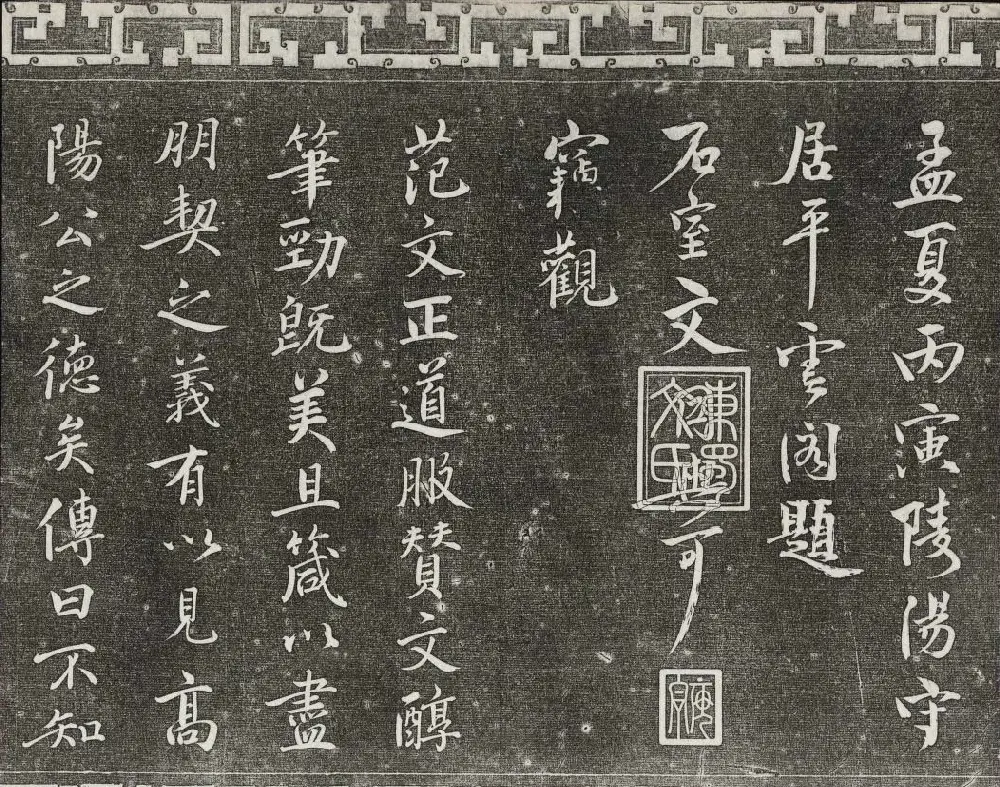 孟夏丙寅陵陽守
居平雲閣題
石室文
同
竊觀
范文正道服贊文醇
筆勁既美且箴以盡
朋契之義有以見高
陽公之德矣傳曰不知